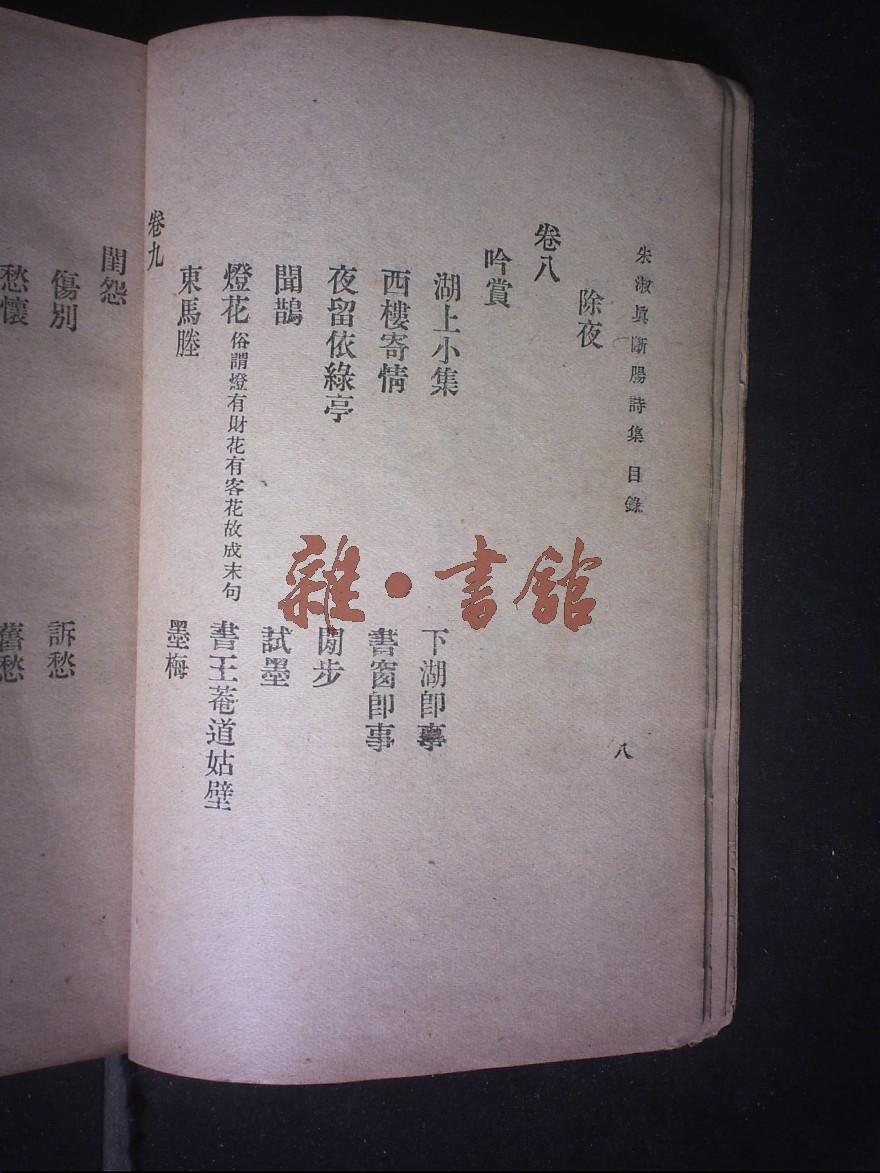 朱淑眞斷腸詩集 目錄 八
除夜
卷八
吟賞
湖上小集 下湖卽事
西樓寄情 書窗卽事
夜留依綠亭 閒步
聞鵲 試墨
燈花 俗謂燈有財花有客花故成末句 書王菴道姑壁
東馬塍 墨梅
卷九
閨怨
傷別 訴愁
愁懷 舊愁
雜·書館